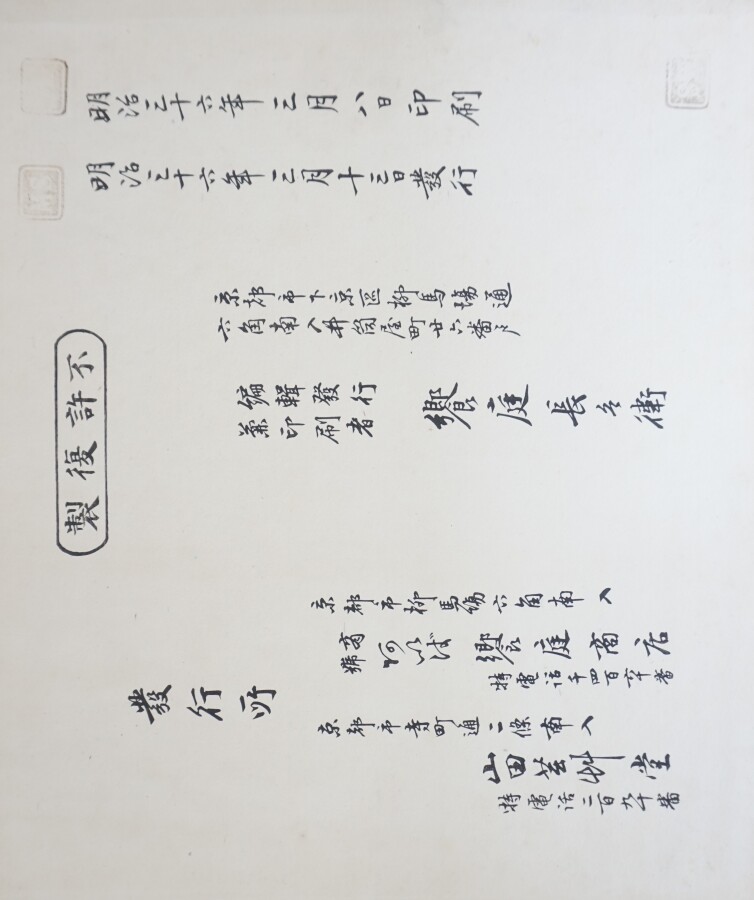 明治三十六年三月八日印刷
明治三十六年三月十三日發行
不許復製
京都市下京區柳馬場通
六角南入井筒屋町廿六番戸
編輯發行
兼印刷者
饗庭長兵衛
發行所
京都市柳馬塲六角南入
商號 阿以ば 饗庭商店
特電話千四百六十番
京都市寺町通二條南入
山田芸艸堂
特電話二百九十番